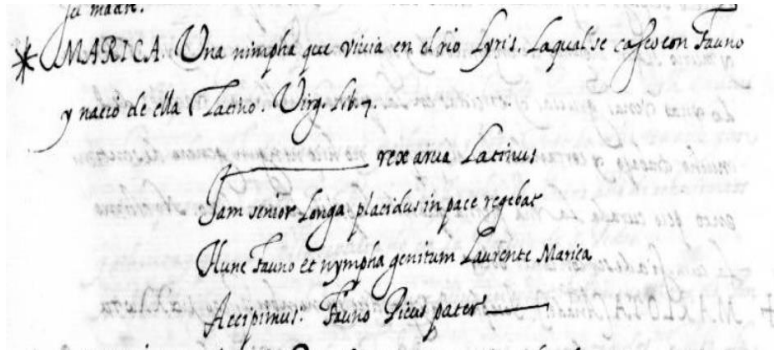 su madre.
* MARICA. Una nimpha que vivia en el rio Lyris. Laqual se casso con Fauno
y nació de ella Latino. Virg. lib. 7.
rex arva Latinus
Jam senior longa placidus in pace regebat
Hunc Fauno et nympha genitum Laurente Marica
Accipimus: Fauno Picus pater